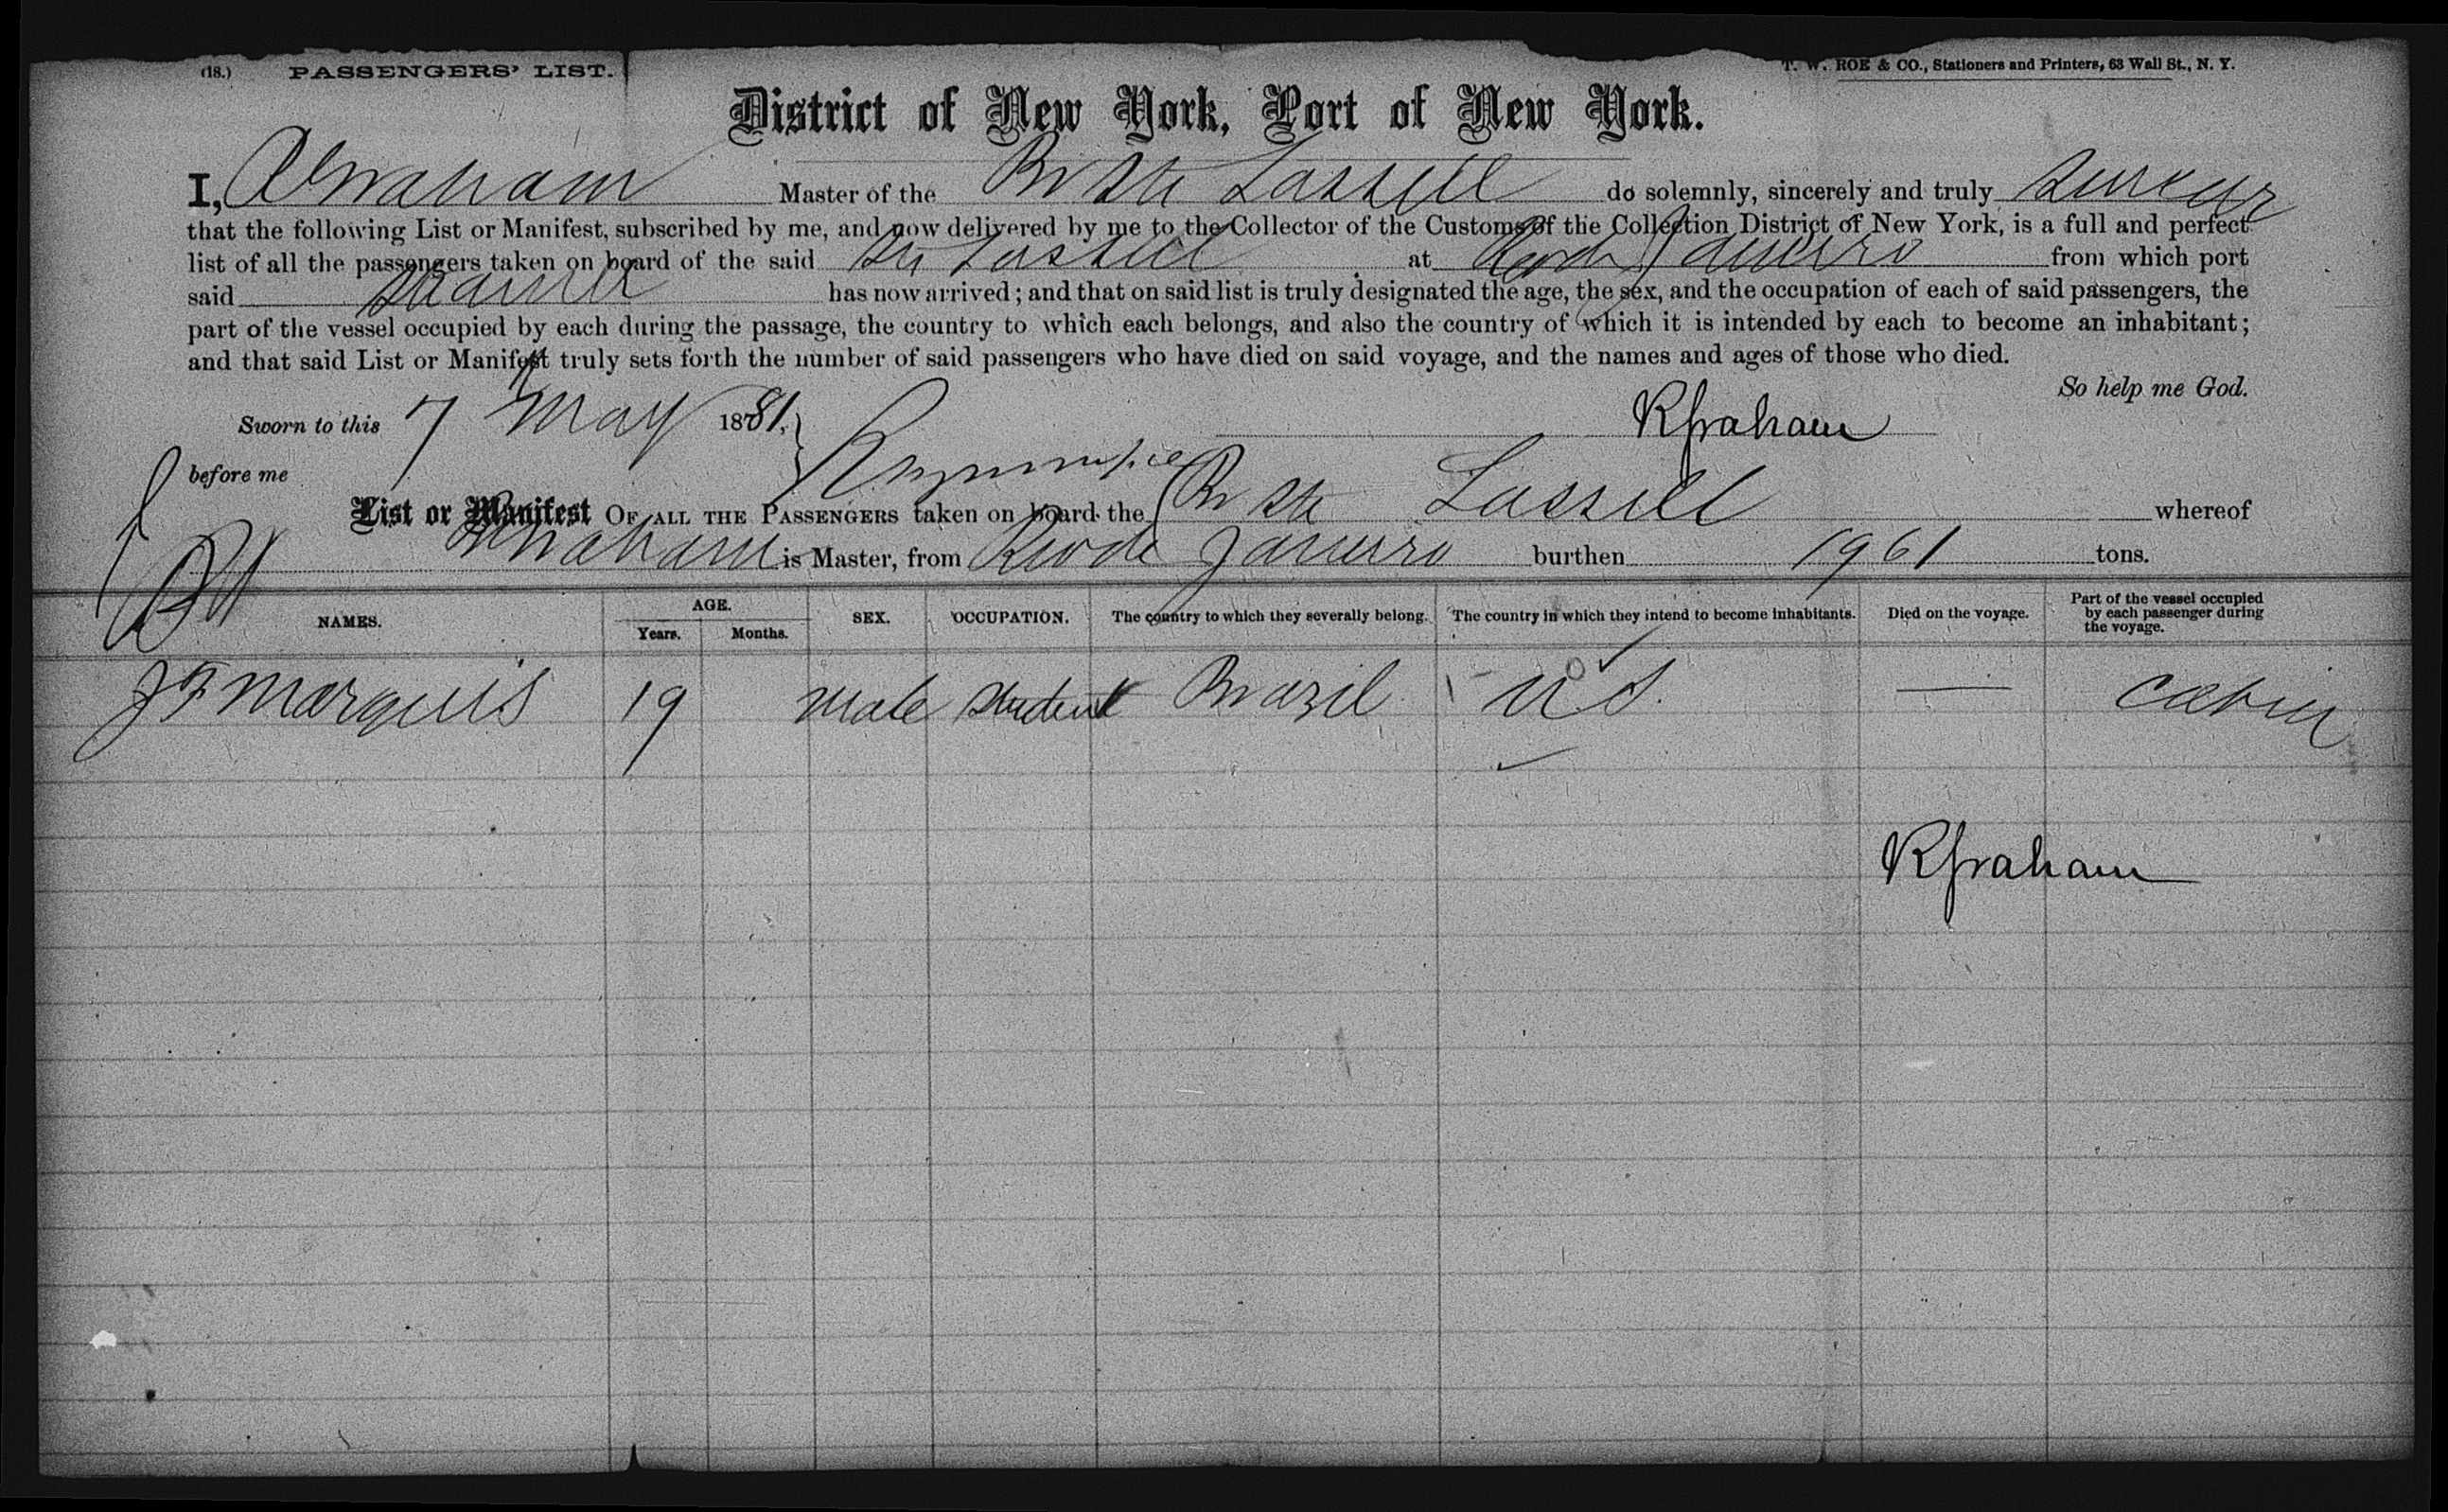 (18.) PASSENGERS' LIST. T. W. ROE & CO., Stationers and Printers, 63 Wall St., N. Y.
District of New York, Port of New York.
I, Abraham Master of the Br Str Lassell do solemnly, sincerely and truly swear
that the following List or Manifest, subscribed by me, and now delivered by me to the Collector of the Customs of the Collection District of New York, is a full and perfect
list of all the passengers taken on board of the said Str Lassell at Rio de Janeiro from which port
said Steamer has now arrived; and that on said list is truly designated the age, the sex, and the occupation of each of said passengers, the
part of the vessel occupied by each during the passage, the country to which each belongs, and also the country of which it is intended by each to become an inhabitant;
and that said List or Manifest truly sets forth the number of said passengers who have died on said voyage, and the names and ages of those who died.
So help me God.
Sworn to this 7 May 1881,
before me
List or Manifest OF ALL THE PASSENGERS taken on board the Br Str Lassell whereof
Abraham is Master, from Rio de Janeiro burthen 1961 tons.
NAMES. AGE. Years. Months. SEX. OCCUPATION. The country to which they severally belong. The country in which they intend to become inhabitants. Died on the voyage. Part of the vessel occupied by each passenger during the voyage.
J F Marquis 19 Male Student Brazil U S. — Cabin